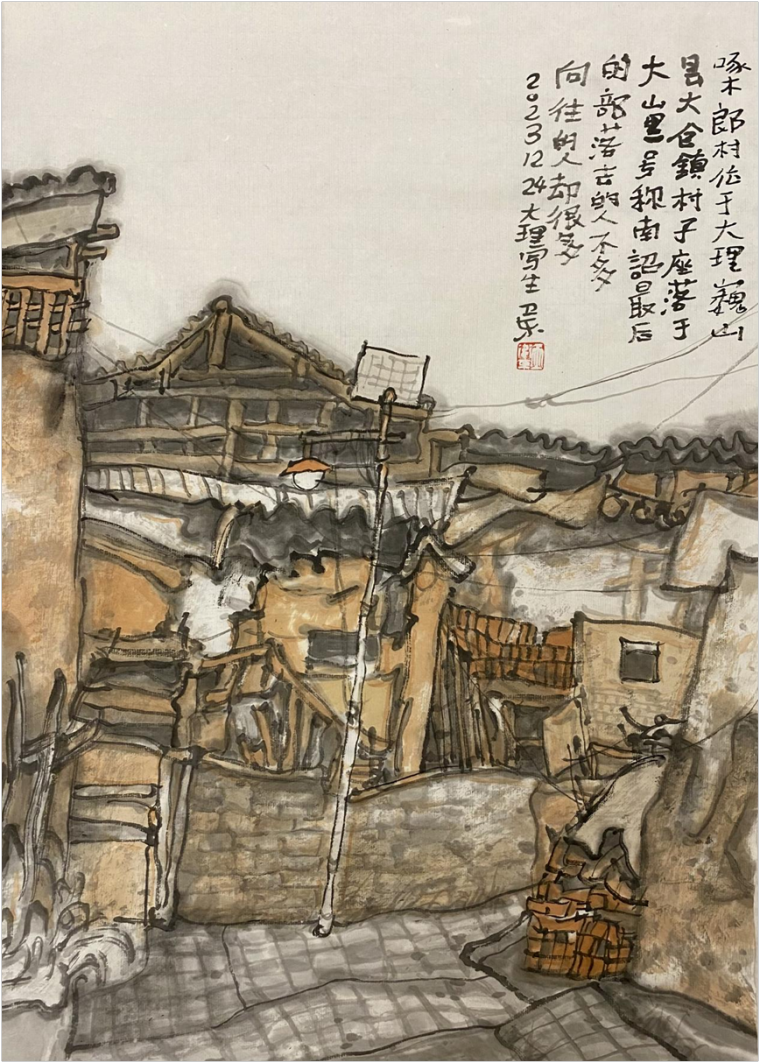 啄木郎村位于大理巍山
县大仓鎮村子座落于
大山里号称南詔最后
的部落去的人不多
向往的人却很多
2023 12 24 大理写生